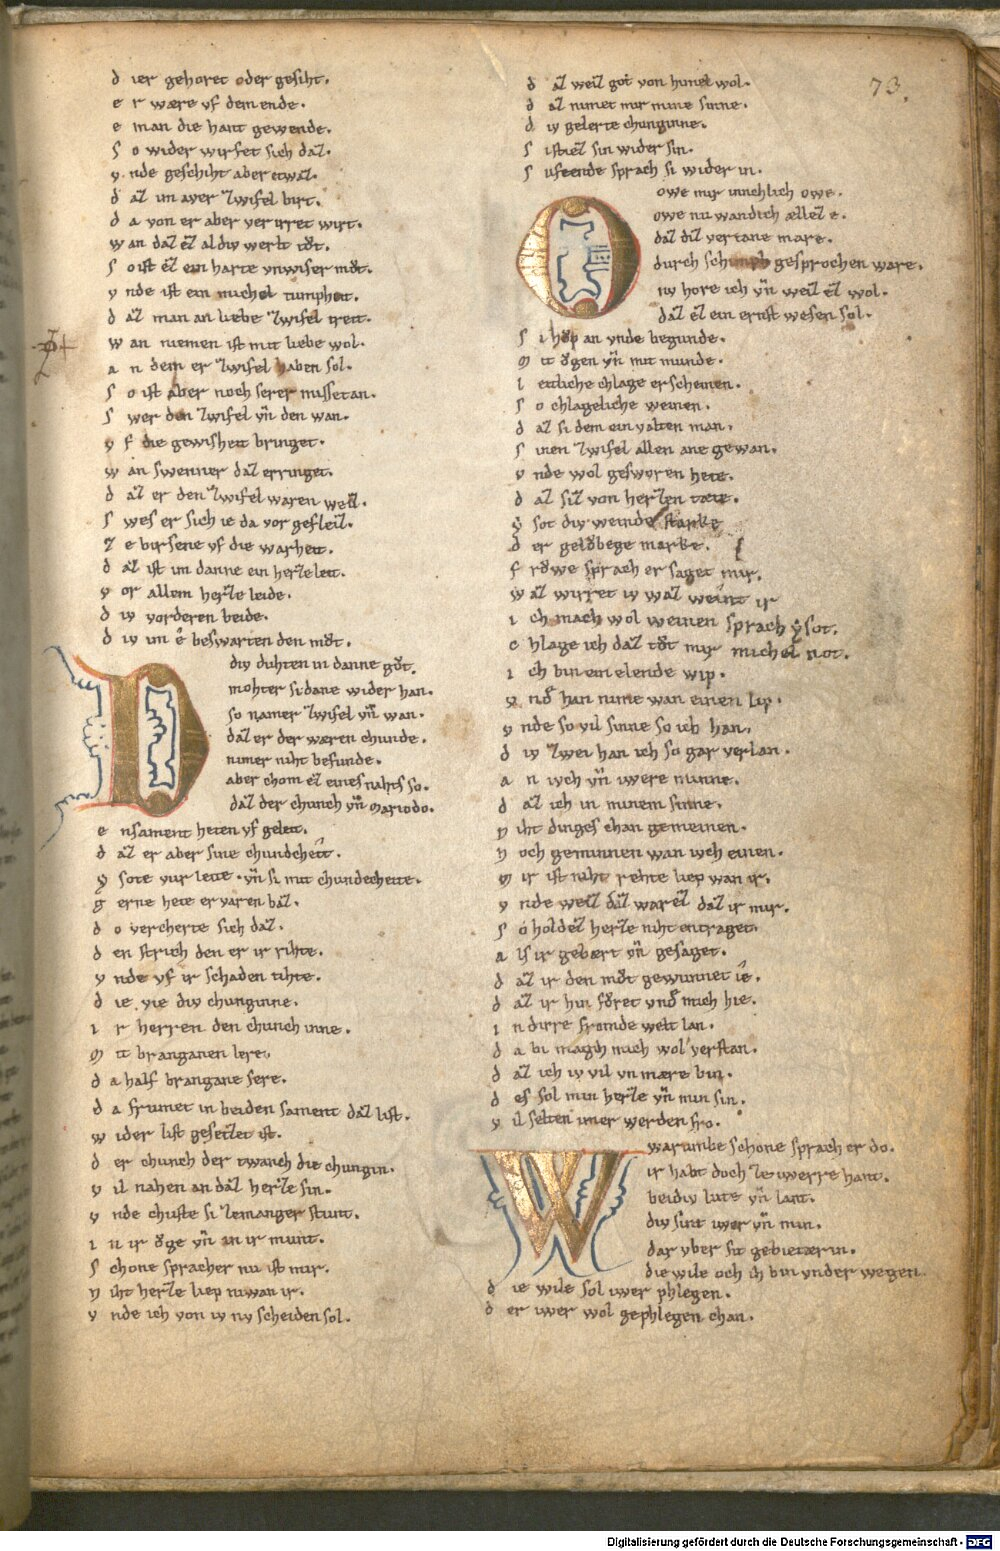 d ier gehoret oder gesiht.
e r wære vf dem ende.
e man die hant gewende.
s o wider wirfet sich daz.
v nde geschiht aber etwaz.
d az im aver zwifel birt.
d a von er aber verirret wirt.
w an daz ez al div werlt tůt.
s o ist ez ein harte vnwiser můt.
v nde ist ein michel tumpheit.
d az man an liebe zwifel treit.
w an niemen ist mit liebe wol.
a n dem er zwifel haben sol.
s o ist aber noch serer missetan.
s wer den zwifel vn̄ den wan.
v f die gewisheit bringet.
w an swenner daz erringet.
d az er den zwifel waren weiz.
s wes er sich ie da vor gefleiz.
z e birsene vf die warheit.
d az ist im danne ein herzeleit.
v or allem herze leide.
d iv vorderen beide.
d iv im ê beswarten den můt.
D div duhten in danne gůt.
mohter si dane wider han.
so namer zwifel vn̄ wan.
daz er der wæren chunde.
nimer niht befunde.
aber chom ez eines nahts so.
daz der chunch vn̄ Mariodo.
e nsament heten vf geleit.
d az er aber sine chundcheit.
y sote vur leite. vn̄ si mit chundecheite.
g erne hete ervaren baz.
d o vercherte sich daz.
d en strich den er ir rihte.
v nde vf ir schaden tihte.
d ie vie div chunginne.
i r herren den chunch inne.
m it branganen lere.
d a half brangane sere.
d a frumet in beiden sament daz list.
w ider list gesetzet ist.
d er chunch der twanch die chungin.
v il nahen an daz herze sin.
v nde chuste si ze manger stunt.
i n ir ŏge vn̄ an ir munt.
s chone spracher nu ist mir.
n iht herze liep niwan ir.
v nde ich von iv nv scheiden sol.
73.
d az weiz got von himel wol.
d az nimet mir mine sinne.
d iv gelerte chunginne.
s istiez sin wider sin.
s ufcende sprach si wider in.
O owe mir innchlich owe.
owe nu wandich ællez e.
daz diz vertane mare.
durch schimph gesprochen ware.
nv hore ich vn̄ weiz ez wol.
daz ez ein ernst wesen sol.
s i hůp an vnde begunde.
m it ŏgen vn̄ mit munde.
l eitliche chlage erscheinen.
s o chlageliche weinen.
d az si dem einvalten man.
s inen zwifel allen ane gewan.
v nde wol gesworen hete.
d az siz von herzen tæte.
y sot div weinde starke
d er gelŏbege marke.
f rŏwe sprach er saget mir.
w az wirret iv waz weint ir
i ch mach wol weinen sprach ysot.
c hlage ich daz tůt mir michel not.
i ch bin ein elende wip.
v nd̄ han nime wan einen lip.
v nde so vil sinne so ich han.
d iv zwei han ich so gar verlan.
a n ivch vn̄ iwere minne.
d az ich in minem sinne.
n iht dinges chan gemeinen.
n och geminnen wan ivch einen.
m ir ist niht rehte liep wan ir.
v nde weiz daz war ez daz ir mir.
s o holdez herze niht entraget.
a ls ir gebært vn̄ gesaget.
d az ir den můt gewunnet ie.
d az ir hin fůret vnd̄ mich hie.
i n dirre fromde welt lan.
d a bi magih mich wol verstan.
d az ich iv vil vnmære bin.
d es sol min herze vn̄ min sin.
v il selten imer werden fro.
W warumbe schone sprach er do.
ir habt doch ze iwerre hant.
beidiv lute vn̄ lant.
div sint iwer vn̄ min.
dar vber sit gebietærin.
die wile och ih bin vnder wegen.
d ie wile sol iwer phlegen.
d er iwer wol gephlegen chan.
Digitalisierung gefördert durch die Deutsche Forschungsgemeinschaft - DFG